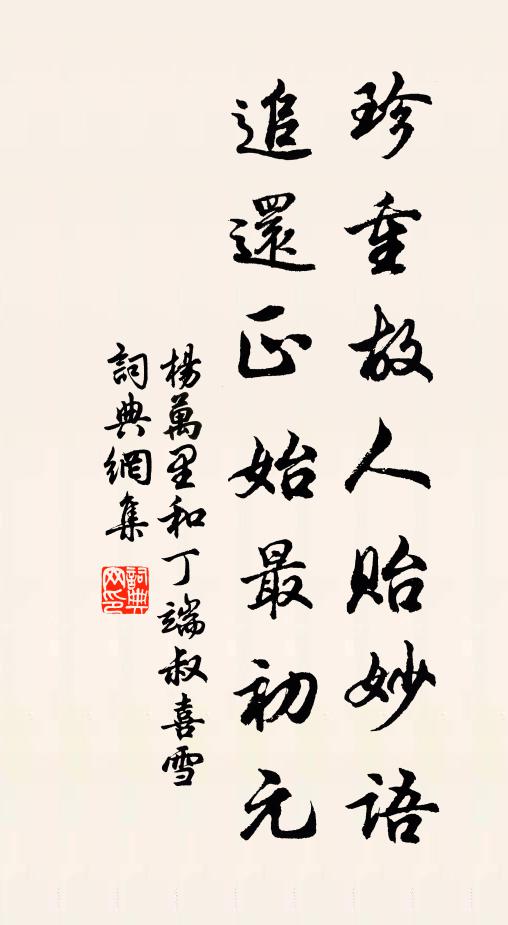 珍重故人貽妙語
追還正始最初元
楊萬里和丁端叔喜雪
詞典網集
詞典網印